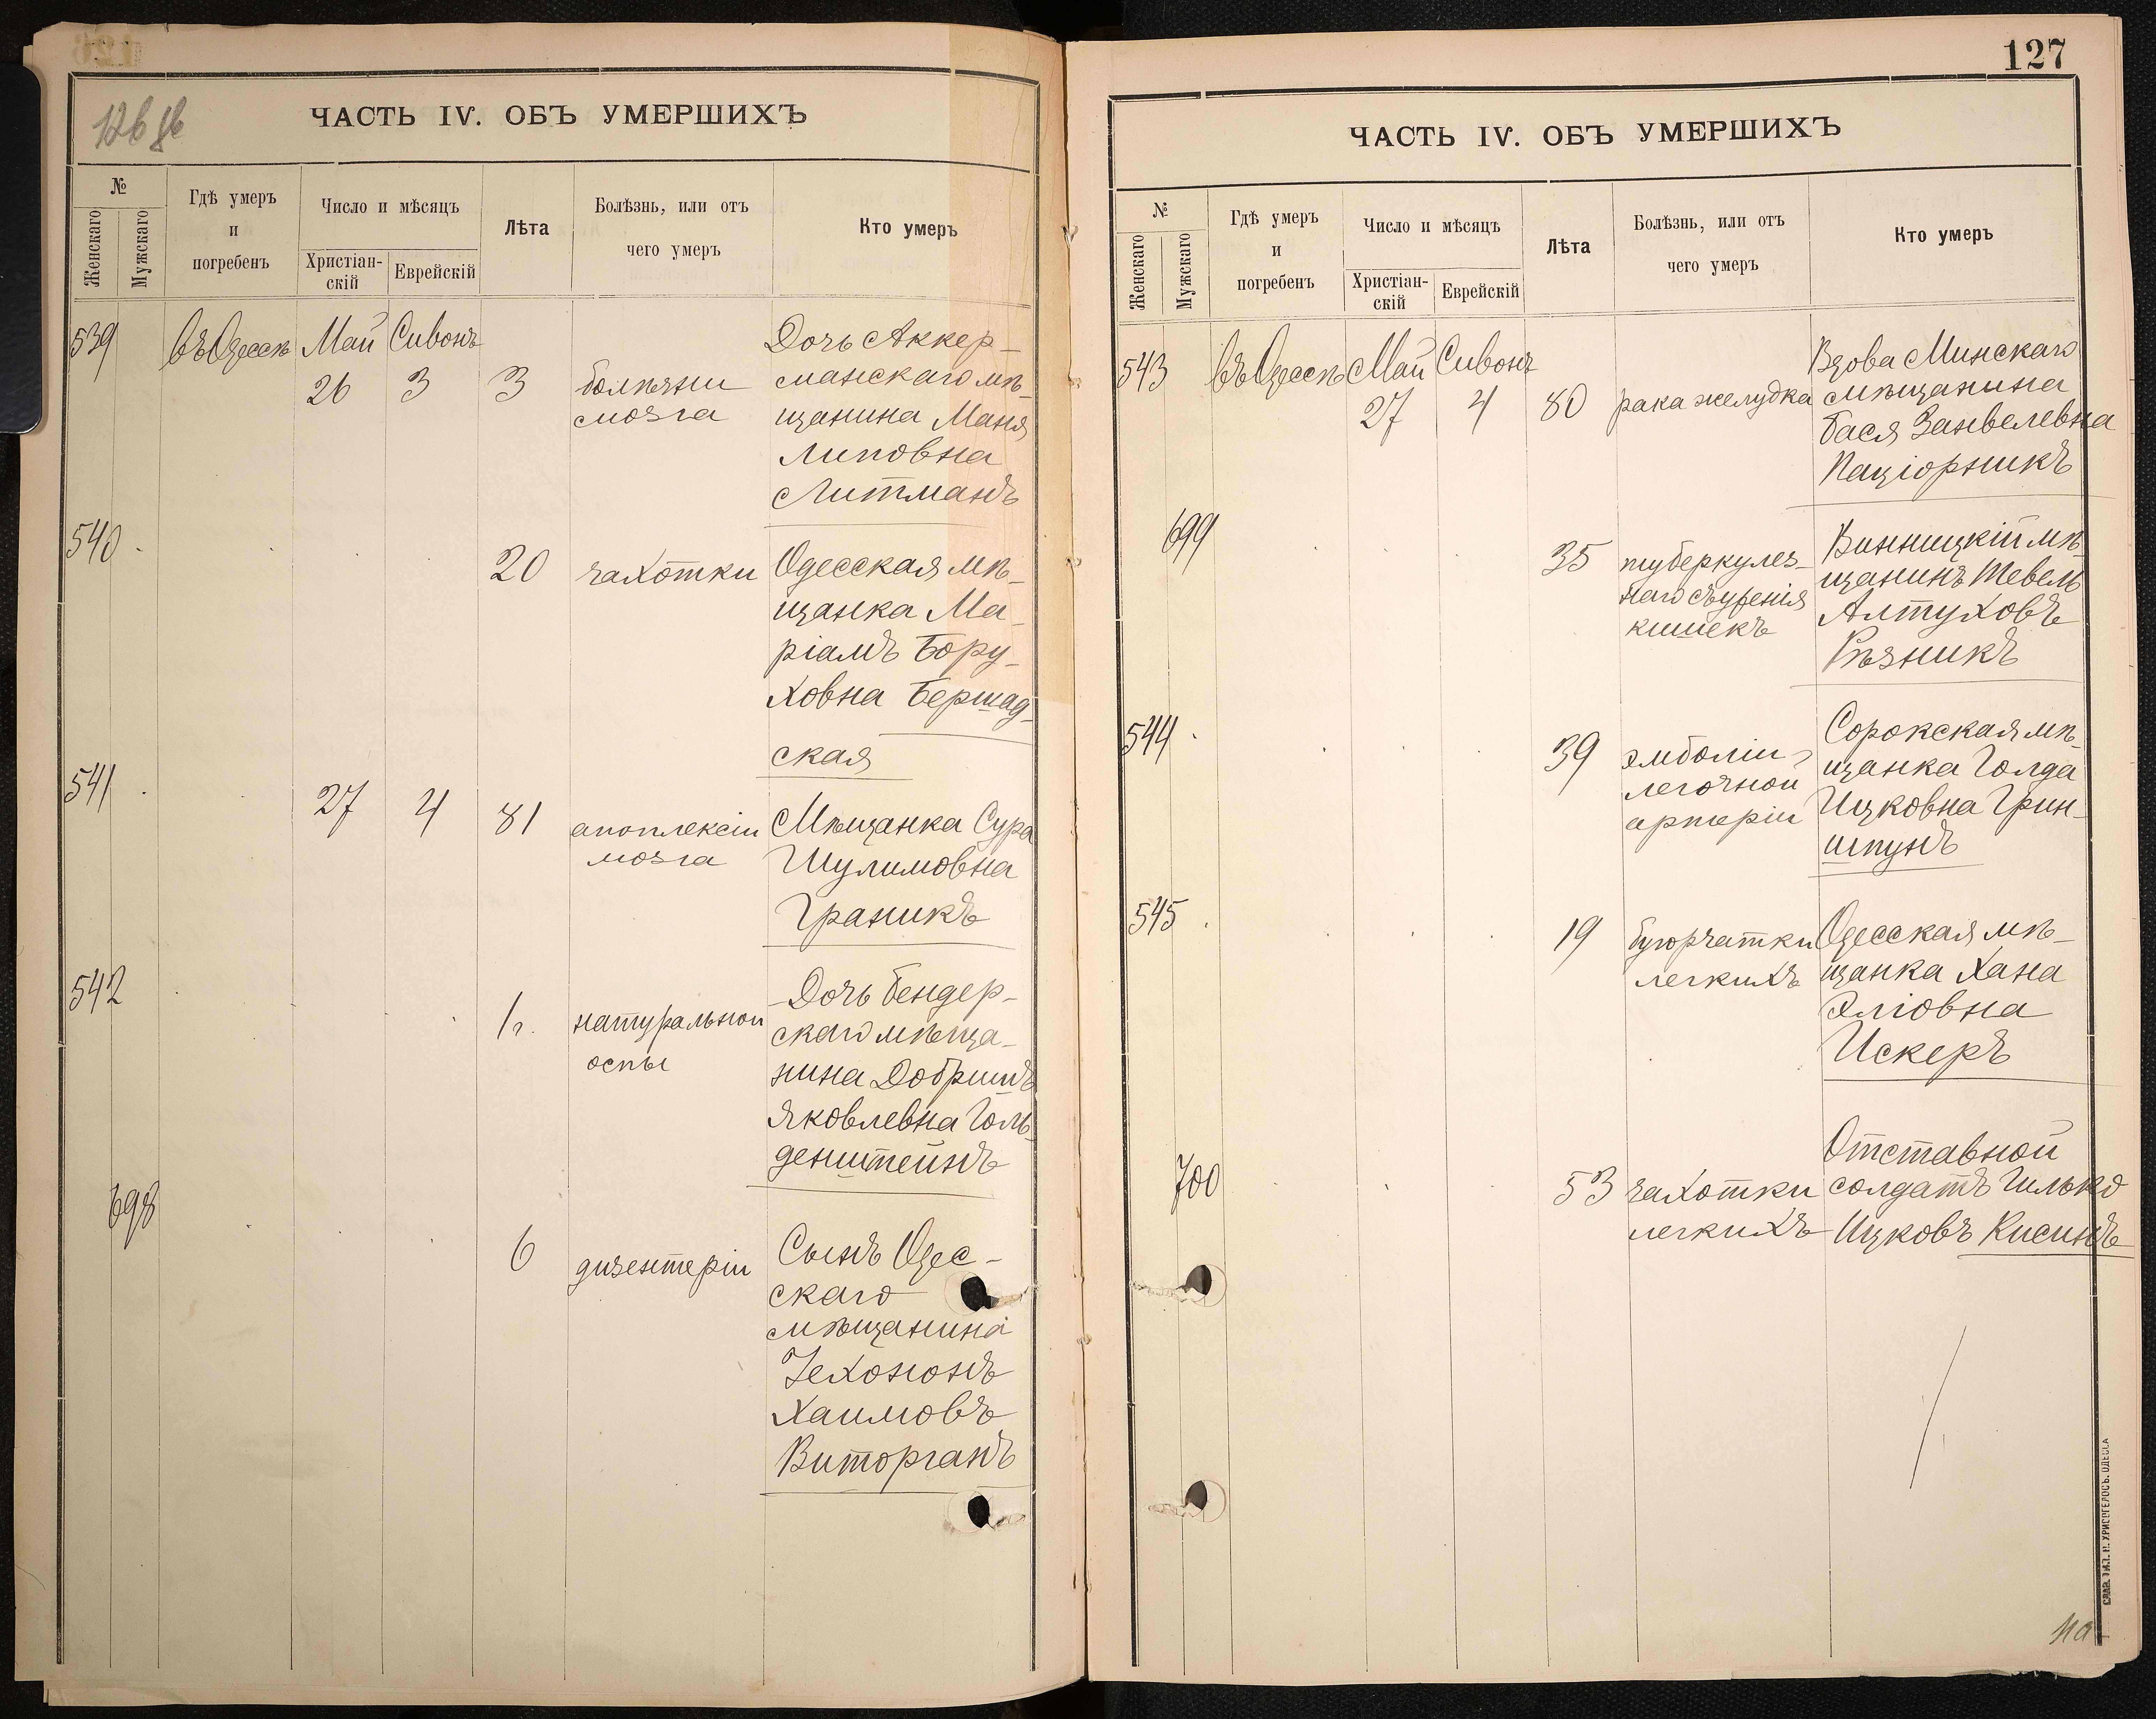 ЧАСТЬ IV. ОБЪ УМЕРШИХЪ
№
Женскаго
Мужскаго
Гдѣ умеръ
и
погребенъ
Число и мѣсяцъ
Христіан-
скій
Еврейскій
Лѣта
Болѣзнь, или отъ
чего умеръ
Кто умеръ
539
въ Одессѣ
Май
Сивонъ
26
3
3
болѣзни
мозга
Дочь Аккер-
манскаго мѣ-
щанина Маня
Липовна
Литманъ
540
20
чахотки
Одесская мѣ-
щанка Ма-
ріамъ Бору-
ховна Бершад-
ская
541
27
4
81
апоплексіи
мозга
Мѣщанка Сура
Шулимовна
Граникъ
542
1 г.
натуральной
оспы
Дочь Бендер-
скаго мѣща-
нина Добришъ
Яковлевна Голь-
денштейнъ
698
6
дизентеріи
Сынъ Одес-
скаго
мѣщанина
Зехононъ
Хаимовъ
Виторганъ
127
ЧАСТЬ IV. ОБЪ УМЕРШИХЪ
№
Женскаго
Мужскаго
Гдѣ умеръ
и
погребенъ
Число и мѣсяцъ
Христіан-
скій
Еврейскій
Лѣта
Болѣзнь, или отъ
чего умеръ
Кто умеръ
543
въ Одессѣ
Май
Сивонъ
27
4
80
рака желудка
Вдова Минскаго
мѣщанина
Бася Занвелевна
Паціорникъ
699
35
туберкулез-
наго съуженія
кишекъ
Винницкій мѣ-
щанинъ Тевель
Алтуховъ
Рѣзникъ
544
39
эмболіи
легочной
артеріи
Сорокская мѣ-
щанка Голда
Ицковна Грин-
шпунъ
545
19
бугорчатки
легкихъ
Одесская мѣ-
щанка Хана
Эліовна
Искеръ
700
53
чахотки
легкихъ
Отставной
солдатъ Гилько
Ицковъ Кисинъ
СЛАВ. ТИП. Н. ХРИСОГЕЛОСЪ. ОДЕССА